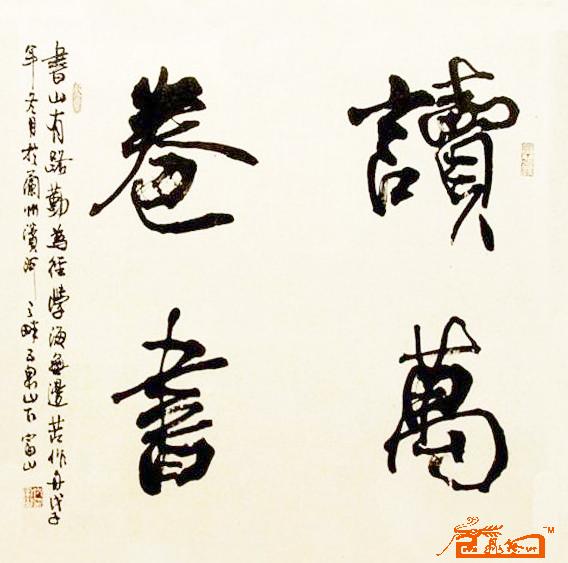 讀萬
卷書
書山有路勤為徑學海無邊苦作舟戊子
年冬月於蘭州濱河之畔五泉山下富山